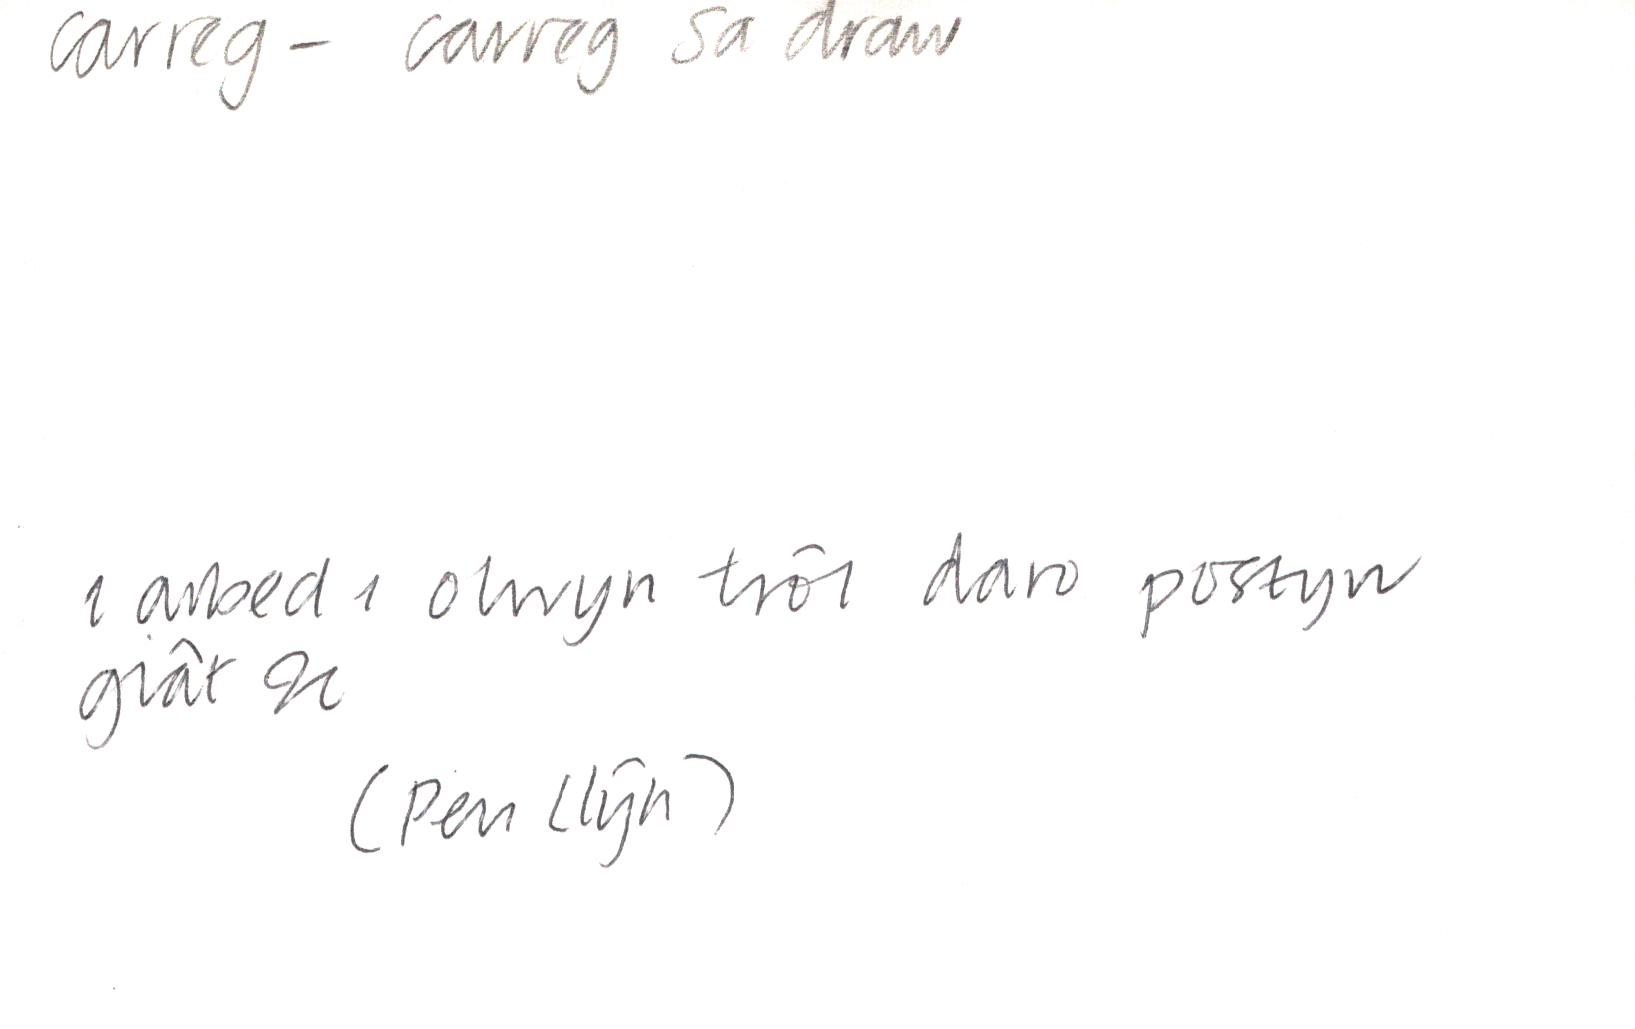 carreg - carreg sa draw
i arbed i olwyn trôl daro postyn
giât &c
(Pen Llŷn)